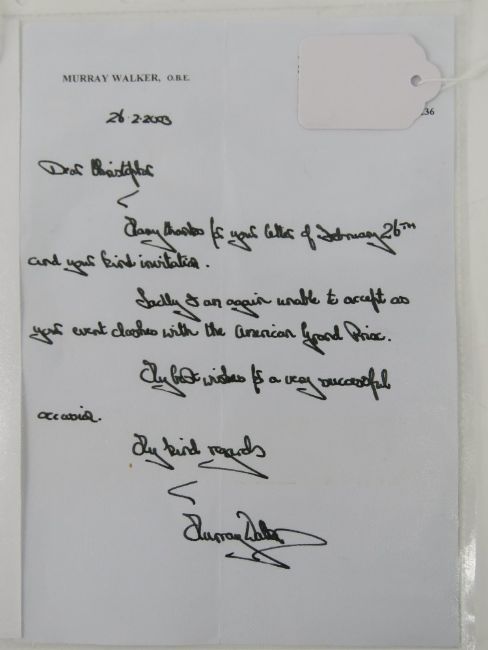 MURRAY WALKER, O.B.E.
36
26.2.2003
Dear Christopher
Many thanks for your letter of February 26TH
and your kind invitation.
Sadly I am again unable to accept as
your event clashes with the American Grand Prix.
My best wishes for a very successful
occasion.
My kind regards
Murray Walker